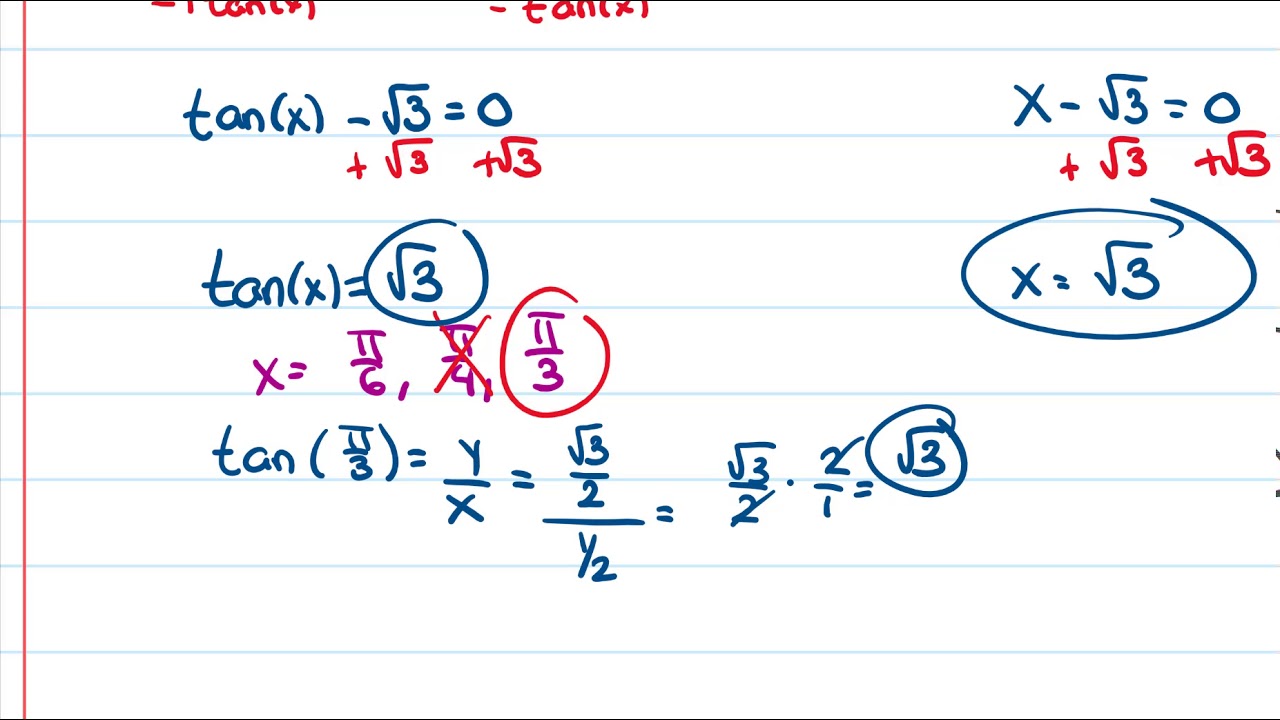 -1tan(x) - tan(x)
tan(x) - √3 = 0
+ √3 +√3
tan(x) = √3
x = π/6, π/4, π/3
tan(π/3) = y/x = (√3/2)/(1/2) = √3/2 · 2/1 = √3
x - √3 = 0
+ √3 +√3
x = √3